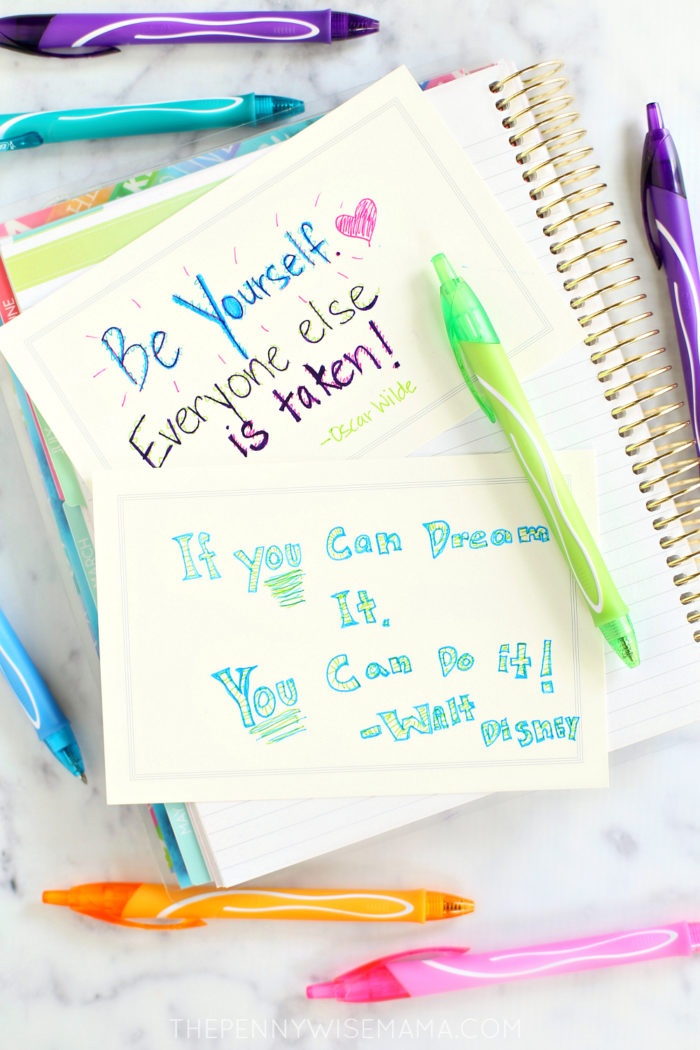 Be Yourself.
Everyone else
is taken!
-Oscar Wilde
If you Can Dream
It.
You Can Do it!
-Walt Disney
NE
MARCH
MAY
THEPENNYWISEMAMA.COM